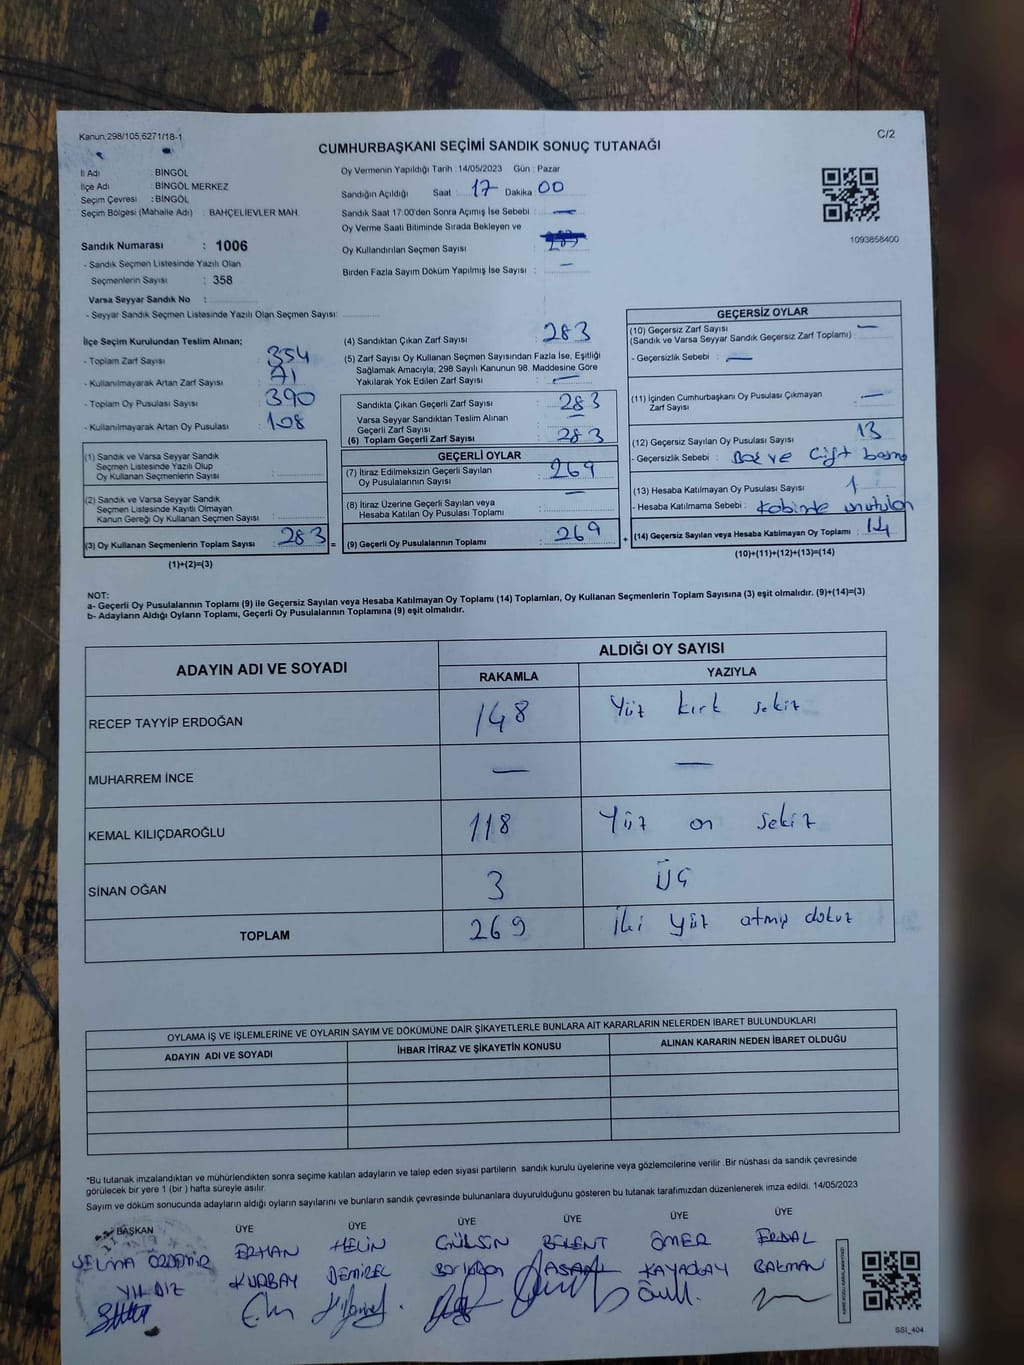 Kanun,298/105,6271/18-1
C/2
CUMHURBAŞKANI SEÇİMİ SANDIK SONUÇ TUTANAĞI
İl Adı : BİNGÖL
İlçe Adı : BİNGÖL MERKEZ
Seçim Çevresi : BİNGÖL
Seçim Bölgesi (Mahalle Adı) : BAHÇELİEVLER MAH.
Oy Vermenin Yapıldığı Tarih : 14/05/2023 Gün : Pazar
Sandığın Açıldığı Saat : 17 Dakika : 00
Sandık Saat 17:00'den Sonra Açımış İse Sebebi : —
Oy Verme Saati Bitiminde Sırada Bekleyen ve
Oy Kullandırılan Seçmen Sayısı :
Birden Fazla Sayım Döküm Yapılmış İse Sayısı : —
1093858400
Sandık Numarası : 1006
- Sandık Seçmen Listesinde Yazılı Olan
Seçmenlerin Sayısı : 358
Varsa Seyyar Sandık No :
- Seyyar Sandık Seçmen Listesinde Yazılı Olan Seçmen Sayısı:
İlçe Seçim Kurulundan Teslim Alınan;
- Toplam Zarf Sayısı : 354
- Kullanılmayarak Artan Zarf Sayısı : 71
- Toplam Oy Pusulası Sayısı : 390
- Kullanılmayarak Artan Oy Pusulası : 108
(1) Sandık ve Varsa Seyyar Sandık
Seçmen Listesinde Yazılı Olup
Oy Kullanan Seçmenlerin Sayısı :
(2) Sandık ve Varsa Seyyar Sandık
Seçmen Listesinde Kayıtlı Olmayan
Kanun Gereği Oy Kullanan Seçmen Sayısı :
(3) Oy Kullanan Seçmenlerin Toplam Sayısı : 283 =
(1)+(2)=(3)
(4) Sandıktan Çıkan Zarf Sayısı : 283
(5) Zarf Sayısı Oy Kullanan Seçmen Sayısından Fazla İse, Eşitliği
Sağlamak Amacıyla; 298 Sayılı Kanunun 98. Maddesine Göre
Yakılarak Yok Edilen Zarf Sayısı : —
Sandıkta Çıkan Geçerli Zarf Sayısı : 283
Varsa Seyyar Sandıktan Teslim Alınan
Geçerli Zarf Sayısı : —
(6) Toplam Geçerli Zarf Sayısı : 283
GEÇERLİ OYLAR
(7) İtiraz Edilmeksizin Geçerli Sayılan
Oy Pusulalarının Sayısı : 269
(8) İtiraz Üzerine Geçerli Sayılan veya
Hesaba Katılan Oy Pusulası Toplamı : —
(9) Geçerli Oy Pusulalarının Toplamı : 269 +
GEÇERSİZ OYLAR
(10) Geçersiz Zarf Sayısı
(Sandık ve Varsa Seyyar Sandık Geçersiz Zarf Toplamı) : —
- Geçersizlik Sebebi : —
(11) İçinden Cumhurbaşkanı Oy Pusulası Çıkmayan
Zarf Sayısı : —
(12) Geçersiz Sayılan Oy Pusulası Sayısı : 13
- Geçersizlik Sebebi : Boş ve Çift basma
(13) Hesaba Katılmayan Oy Pusulası Sayısı : 1
- Hesaba Katılmama Sebebi : Kabinde unutulan
(14) Geçersiz Sayılan veya Hesaba Katılmayan Oy Toplamı : 14
(10)+(11)+(12)+(13)=(14)
NOT:
a- Geçerli Oy Pusulalarının Toplamı (9) ile Geçersiz Sayılan veya Hesaba Katılmayan Oy Toplamı (14) Toplamları, Oy Kullanan Seçmenlerin Toplam Sayısına (3) eşit olmalıdır. (9)+(14)=(3)
b- Adayların Aldığı Oyların Toplamı, Geçerli Oy Pusulalarının Toplamına (9) eşit olmalıdır.
ADAYIN ADI VE SOYADI
ALDIĞI OY SAYISI
RAKAMLA YAZIYLA
RECEP TAYYİP ERDOĞAN 148 Yüz kırk sekiz
MUHARREM İNCE — —
KEMAL KILIÇDAROĞLU 118 Yüz on sekiz
SİNAN OĞAN 3 ÜÇ
TOPLAM 269 İki yüz atmış dokuz
OYLAMA İŞ VE İŞLEMLERİNE VE OYLARIN SAYIM VE DÖKÜMÜNE DAİR ŞİKAYETLERLE BUNLARA AİT KARARLARIN NELERDEN İBARET BULUNDUKLARI
ADAYIN ADI VE SOYADI İHBAR İTİRAZ VE ŞİKAYETİN KONUSU ALINAN KARARIN NEDEN İBARET OLDUĞU
*Bu tutanak imzalandıktan ve mühürlendikten sonra seçime katılan adayların ve talep eden siyasi partilerin sandık kurulu üyelerine veya gözlemcilerine verilir. Bir nüshası da sandık çevresinde
görülecek bir yere 1 (bir ) hafta süreyle asılır.
Sayım ve döküm sonucunda adayların aldığı oyların sayılarını ve bunların sandık çevresinde bulunanlara duyurulduğunu gösteren bu tutanak tarafımızdan düzenlenerek imza edildi. 14/05/2023
BAŞKAN ÜYE ÜYE ÜYE ÜYE ÜYE ÜYE
SELMA ÖZDEMİR ERHAN HELİN GÜLSİN BÜLENT ÖMER ERDAL
YILDIZ KURBAY DEMİREL ASAN KAYAALAY BATMAN
SSI_404